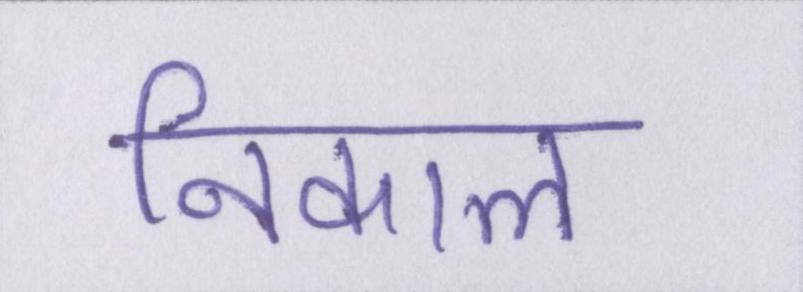 निकाल